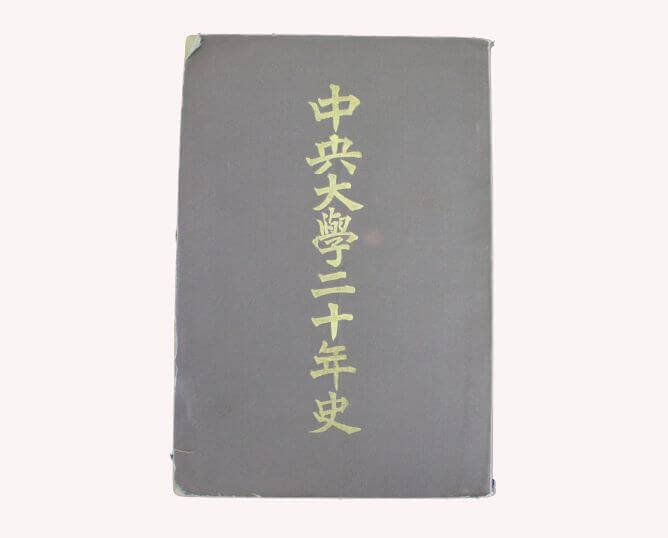 中央大學二十年史